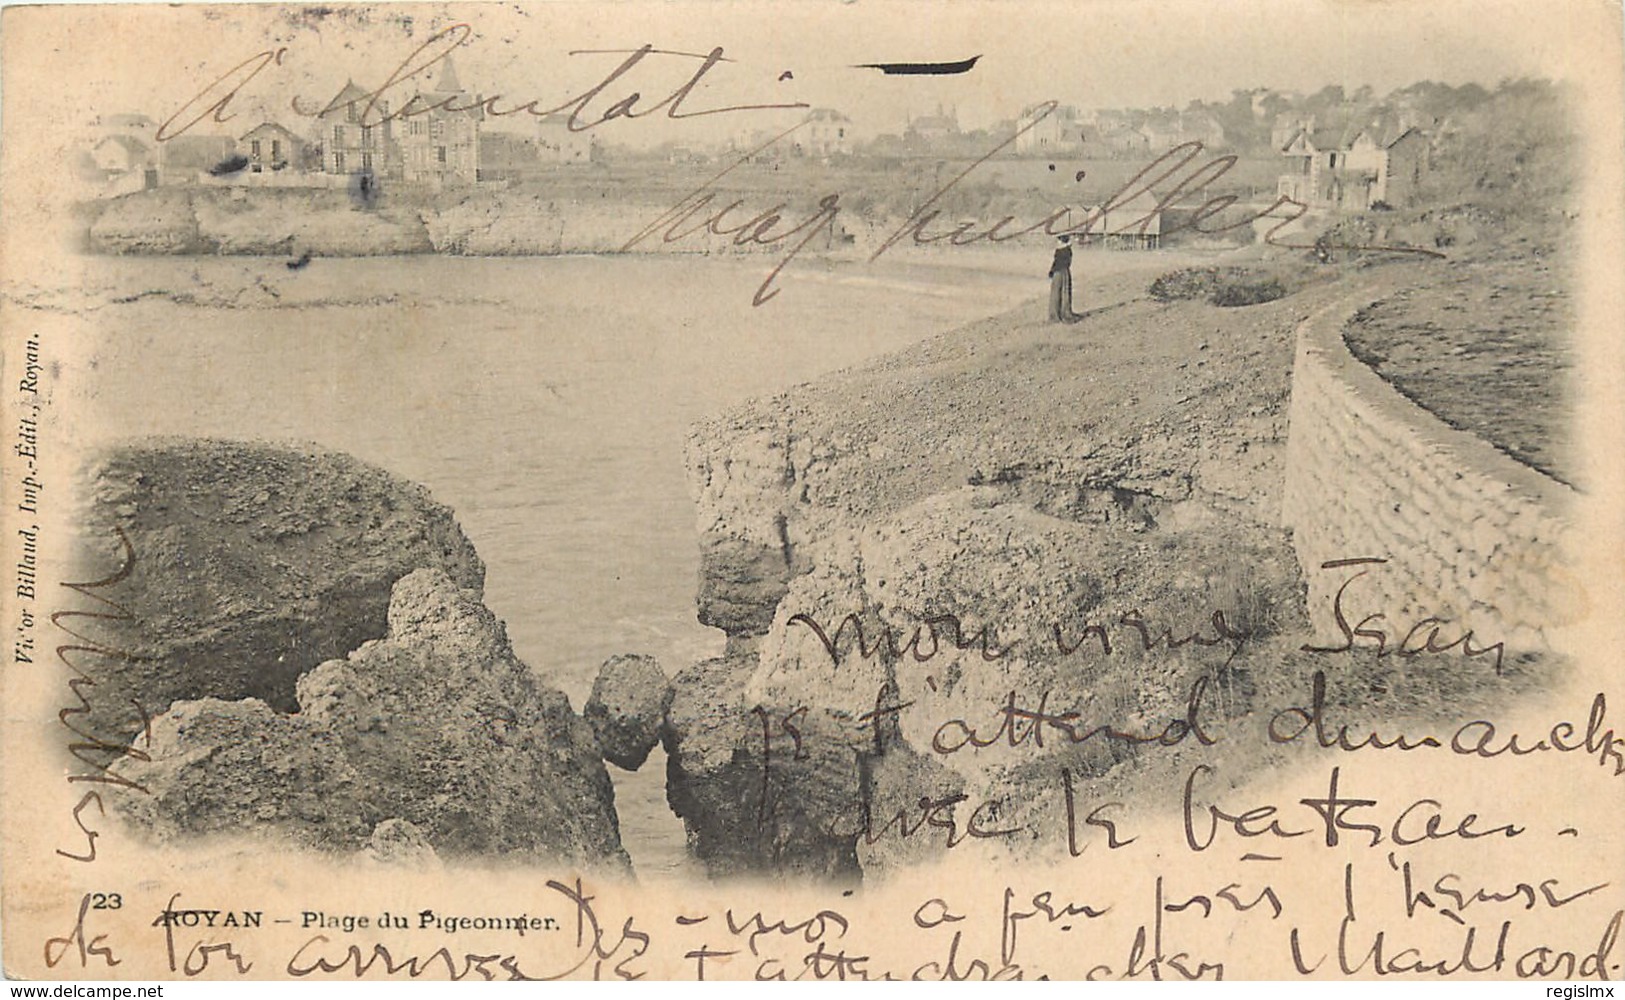 à bientôt -
mon vieux Jean
je t'attend dimanche
avec le bateau.
Dis-moi a peu près l'heure
de ton arrivée je t'attendrai chez Maillard.
Victor Billaud, Imp.-Édit., Royan.
23 ROYAN - Plage du Pigeonnier.
delcampe.net
regislmx